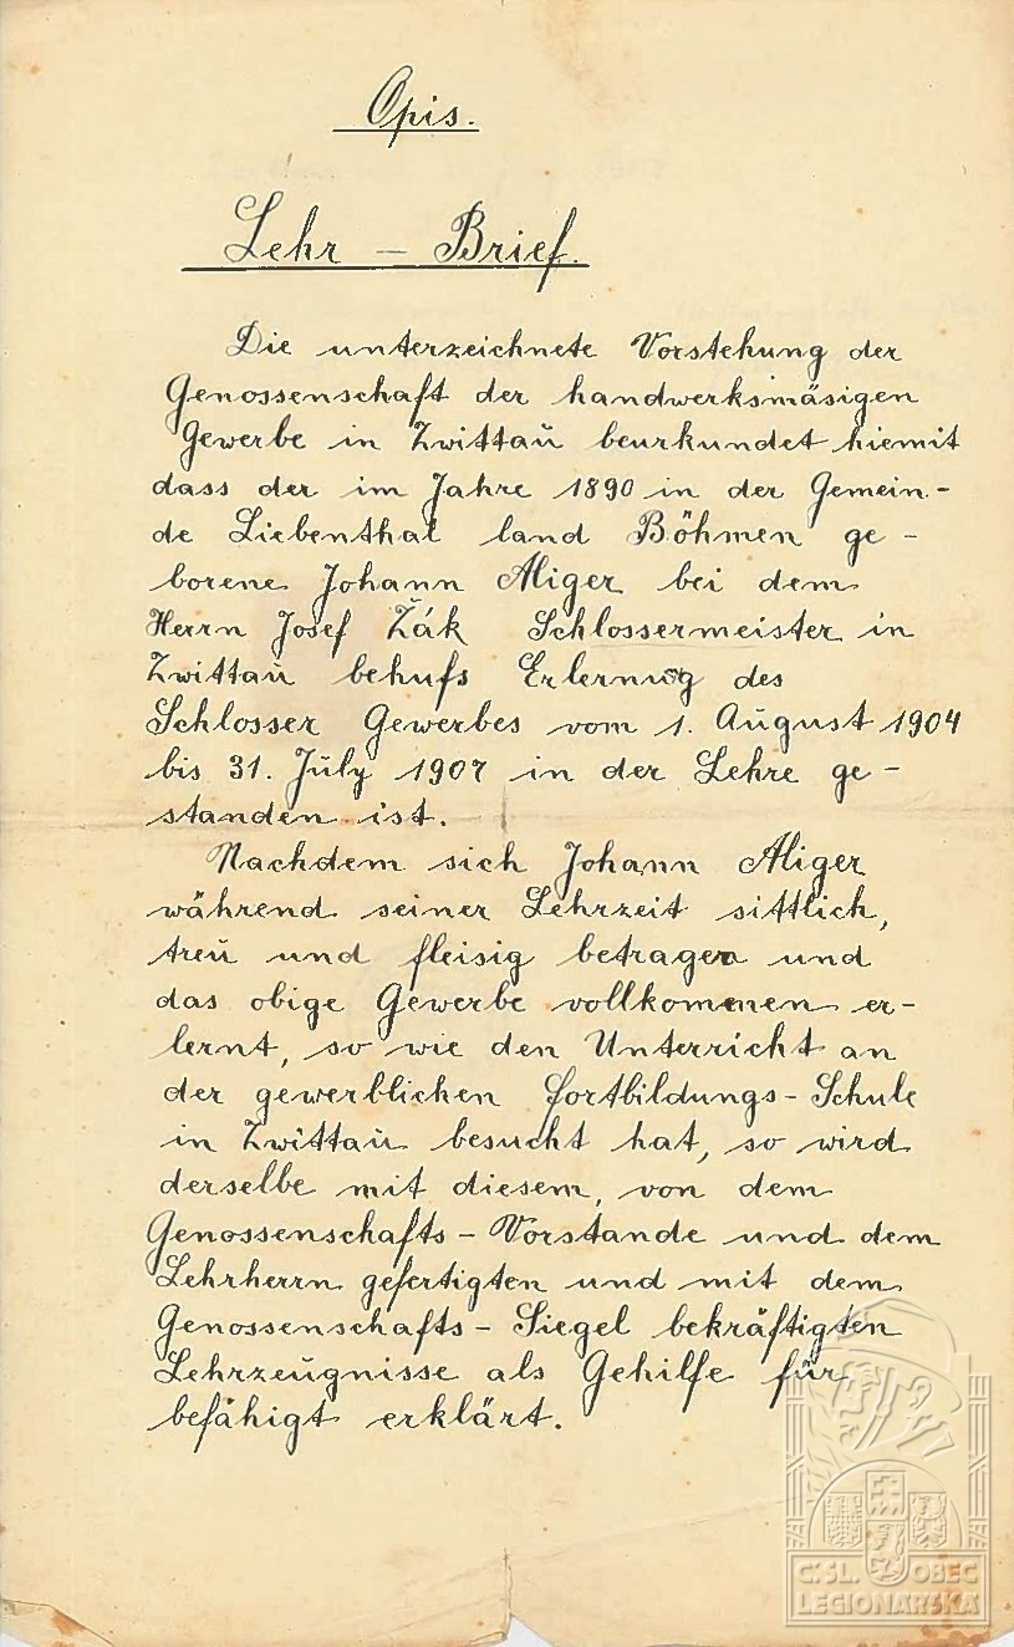 Opis.
Lehr – Brief.
Die unterzeichnete Vorstehung der
Genossenschaft der handwerksmäsigen
Gewerbe in Zwittaŭ beurkundet hiemit
dass der im Jahre 1890 in der Gemein-
de Liebenthal land Böhmen ge-
borene Johann Aliger bei dem
Herrn Josef Žák Schlossermeister in
Zwittaŭ behufs Erlernung des
Schlosser Gewerbes vom 1. Aŭgust 1904
bis 31. Jŭly 1907 in der Lehre ge-
standen ist.
Nachdem sich Johann Aliger
während seiner Lehrzeit sittlich,
treŭ und fleisig betragen und
das obige Gewerbe vollkommen er-
lernt, so wie den Unterricht an
der gewerblichen fortbildungs-Schule
in Zwittaŭ besucht hat, so wird
derselbe mit diesem, von dem
Genossenschafts-Vorstande und dem
Lehrherrn gefertigten und mit dem
Genossenschafts-Siegel bekräftigten
Lehrzeŭgnisse als Gehilfe für
befähigt erklärt.
Č.SL. OBEC
LEGIONÁŘSKÁ